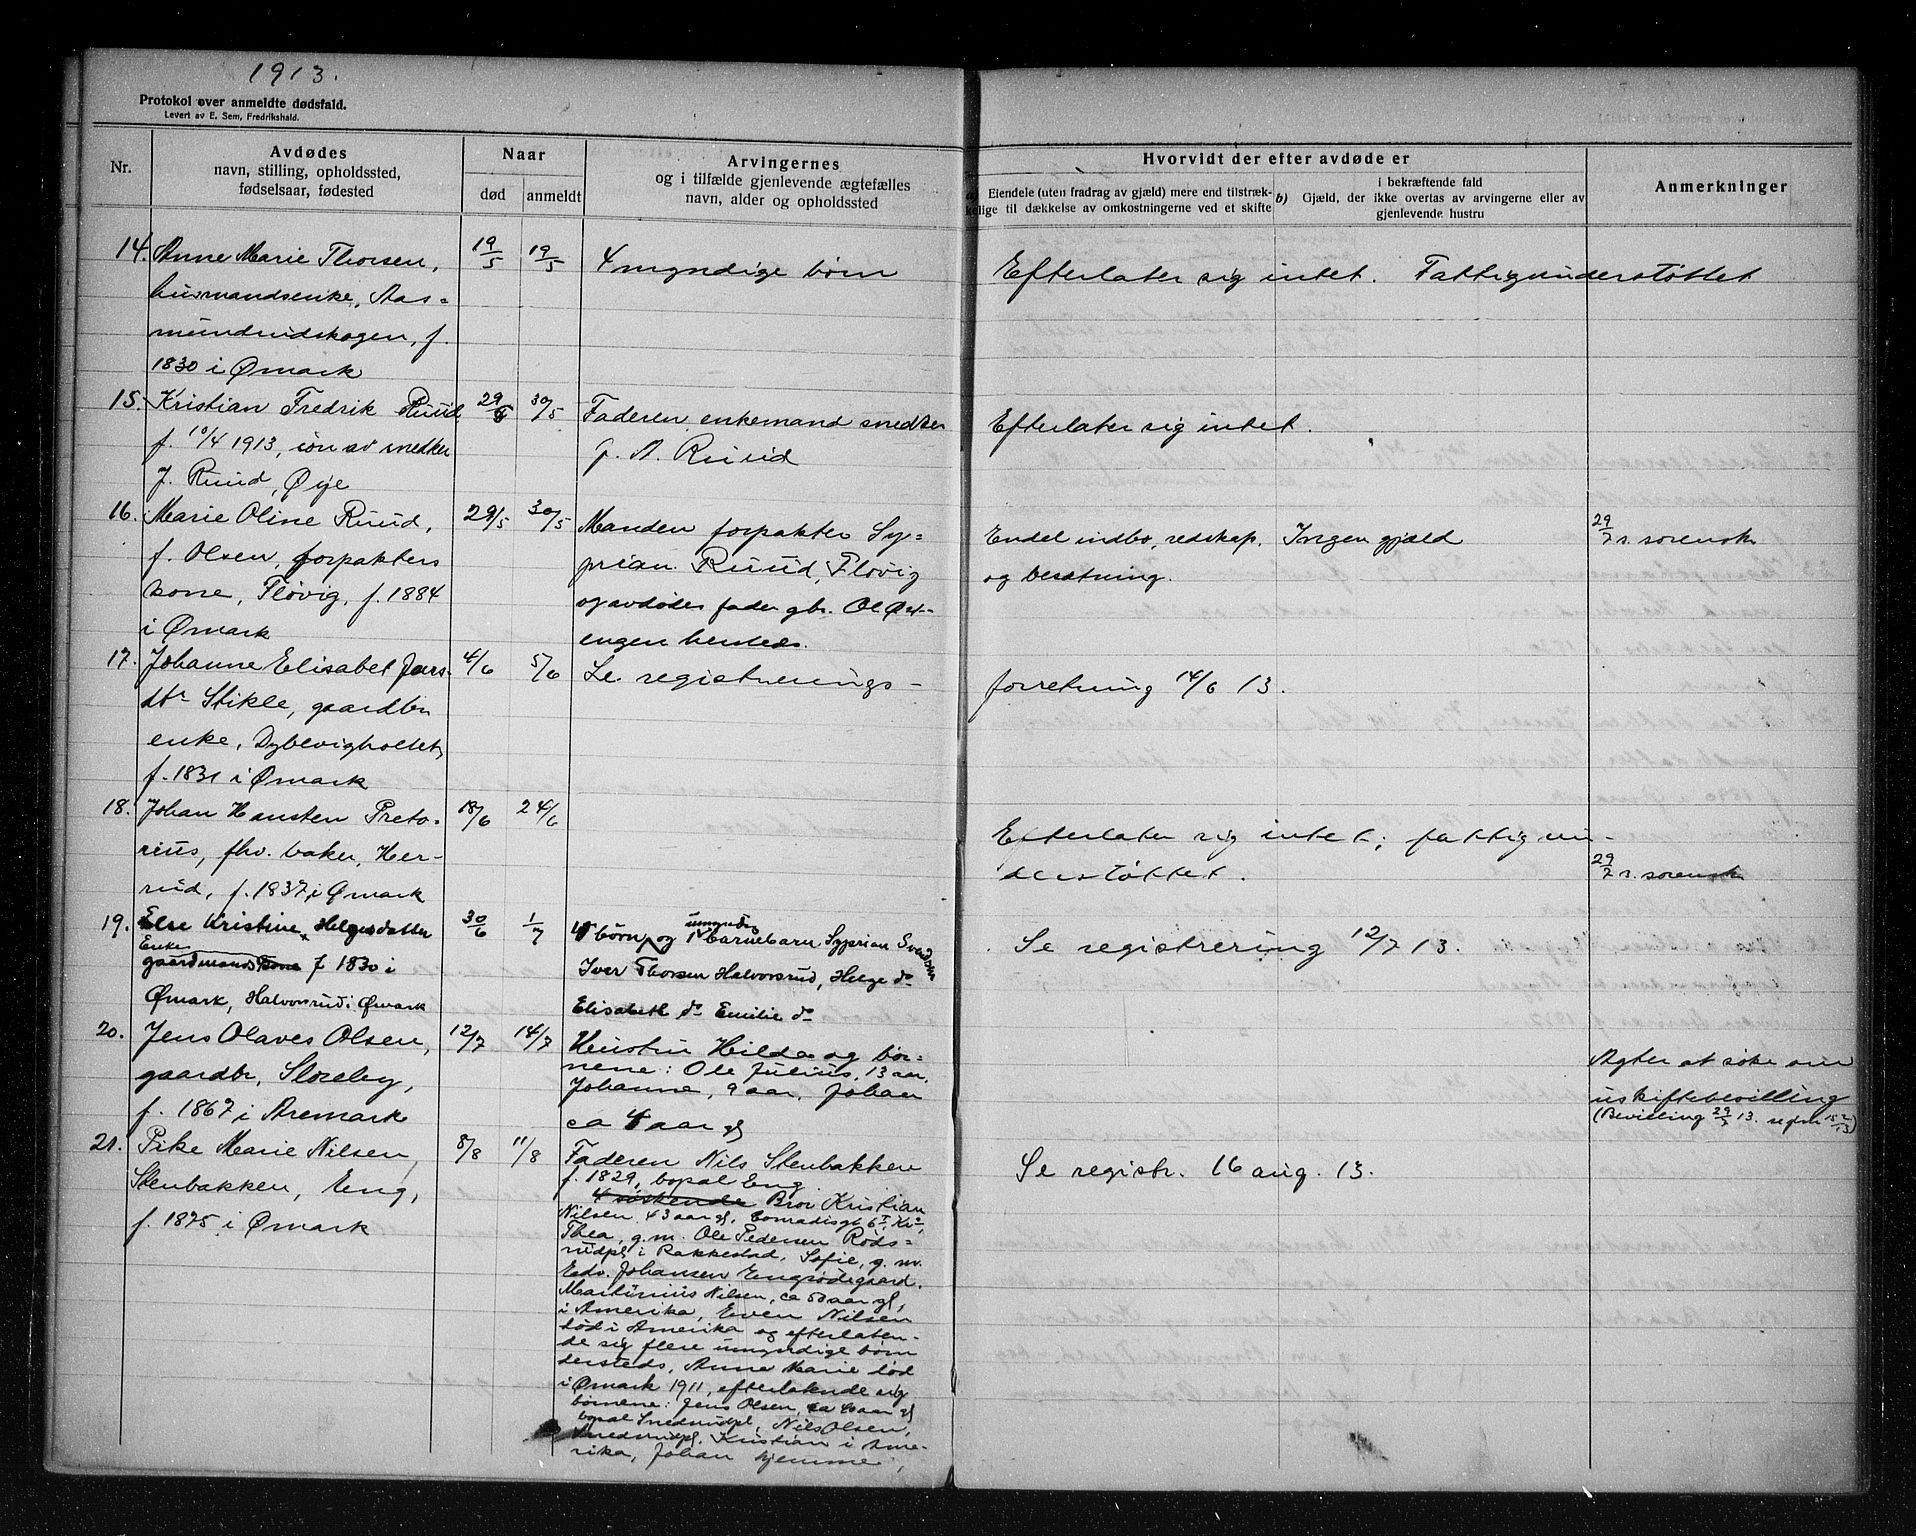 1913.
Protokol over anmeldte dødsfald.
Levert av E. Sem, Fredrikshald.
Nr.
Avdødes
navn, stilling, opholdssted,
fødselsaar, fødested
Naar
død
anmeldt
Arvingernes
og i tilfælde gjenlevende ægtefælles
navn, alder og opholdssted
Hvorvidt der efter avdøde er
a) Eiendele (uten fradrag av gjæld) mere end tilstræk-
kelige til dækkelse av omkostningerne ved et skifte
i bekræftende fald
b) Gjæld, der ikke overtas av arvingerne eller av
gjenlevende hustru
Anmerkninger
14. Anne Marie Thorsen,
husmandsenke, Aas-
mundrudskogen, f.
1830 i Ømark
19/5
19/5
4 myndige børn
Efterlater sig intet. Fattigunderstøttet
15. Kristian Fredrik Ruud
f. 10/4 1913, søn av snedker
J. Ruud, Øije
29/5
30/5
Faderen, enkemand snedker
J. A. Ruud
Efterlater sig intet.
16. Marie Oline Ruud,
f. Olsen, forpakters
kone, Fløvig, f. 1884
i Ømark
29/5
30/5
Manden forpakter Sy-
prian Ruud, Fløvig
og avdødes fader gbr. Ol Øst-
engen hersteds.
Endel indbo, redskap,
og besætning.
Ingen gjæld
29/7 s. sorensk
17. Johanne Elisabet Jars-
dtr Stikle, gaardbr
enke, Dybevigholtet,
f. 1831 i Ømark
4/6
5/6
Se registrerings-
forretning 14/6 13.
18. Johan Hansten Preto-
rius, fhv. baker, Her-
rud, f. 1837 i Ømark
18/6
24/6
Efterlater sig intet; fattigun-
derstøttet.
29/7 s. sorensk
19. Else Kristine Helgesdatter
Enke
gaardmands kone f 1830 i
Ømark, Halvorsrud i Ømark
30/6
1/7
4 børn og 1 umyndig barnebarn Syprian Svendsen
Iver Thorsen Halvorsrud, Helge do
Elisabeth do Emilie do
Se registrering 12/7 13.
20. Jens Olaves Olsen,
gaardbr, Sloreby,
f. 1867 i Aremark
12/7
14/7
Hustru Hilda og bør-
nene: Ole Julius, 13 aar,
Johanne, 9 aar, Johan
ca 4 aar gl
Agter at søke om
uskiftebevilling
(Bevilling 29/7 13.
21. Pike Marie Nilsen
Stenbakken, Eng,
f. 1875 i Ømark
8/8
11/8
Faderen Nils Stenbakken
f. 1829, bopal Eng
4 søskende Bror Kristian
Nilsen 43 aar gl,
Thea, g. m. Ole Pedersen Røds-
rudpl i Rakkestad, Sofie, g. m.
Edv. Johansen Engsødegaard.
Martinius Nilsen, ca 50 aar gl,
i Amerika, Even Nilsen
død i Amerika og efterlaten-
de sig flere umyndige børn
dersteds, Anne Marie død
i Ømark 1911, efterlatende sig
børnene: Jens Olsen, ca 40 aar gl
bopal Snedrudpl, Nils Olsen,
Snedrudpl, Kristian i Ame-
rika, Johan hjemme,
Se registr. 16 aug. 13.